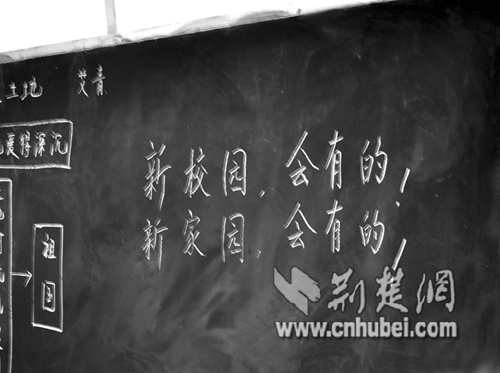 土地 艾青
爱得深沉
祖国
新校园,会有的!
新家园,会有的!
荆楚网
www.cnhubei.com